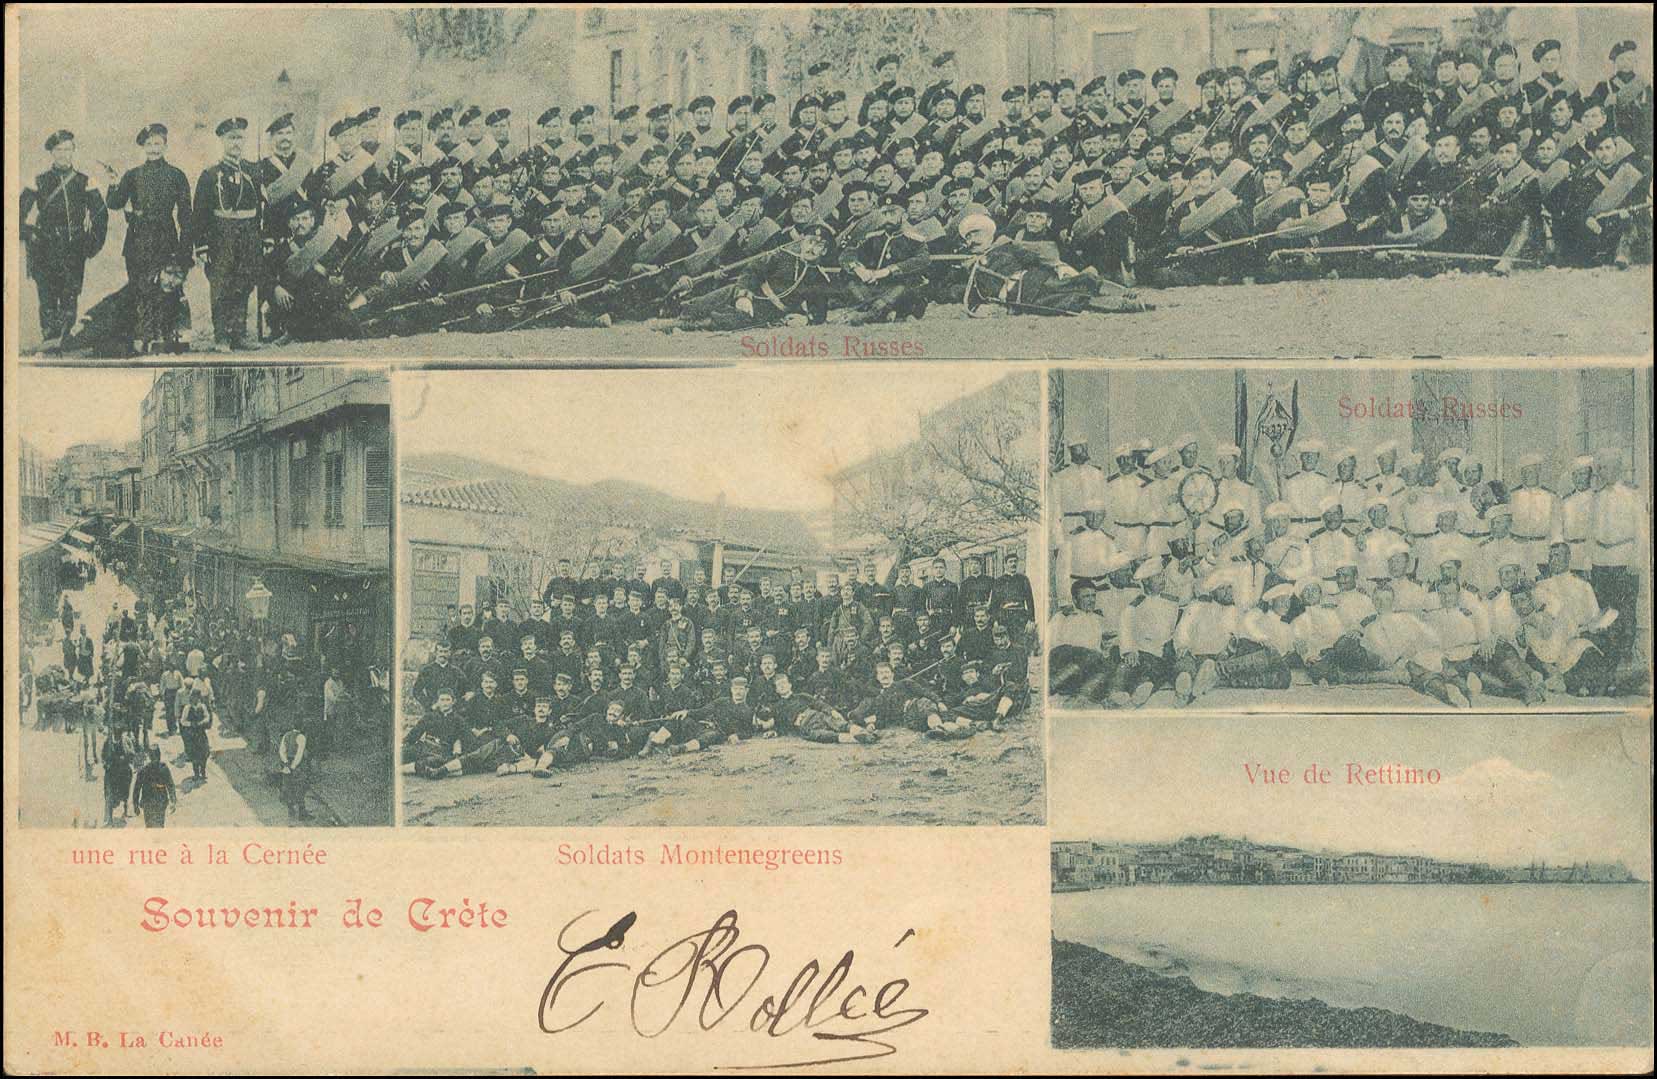 Soldats Russes
Soldats Russes
Vue de Rettimo
une rue à la Cernée
Soldats Montenegreens
Souvenir de Crète
E Rollée
M. B. La Canée